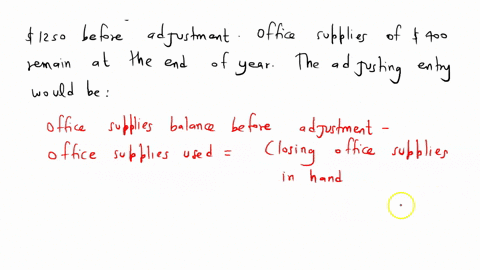 $1250 before adjustment. Office supplies of $400
remain at the end of year. The adjusting entry
would be:
Office supplies balance before adjustment -
Office supplies used = Closing office supplies
in hand